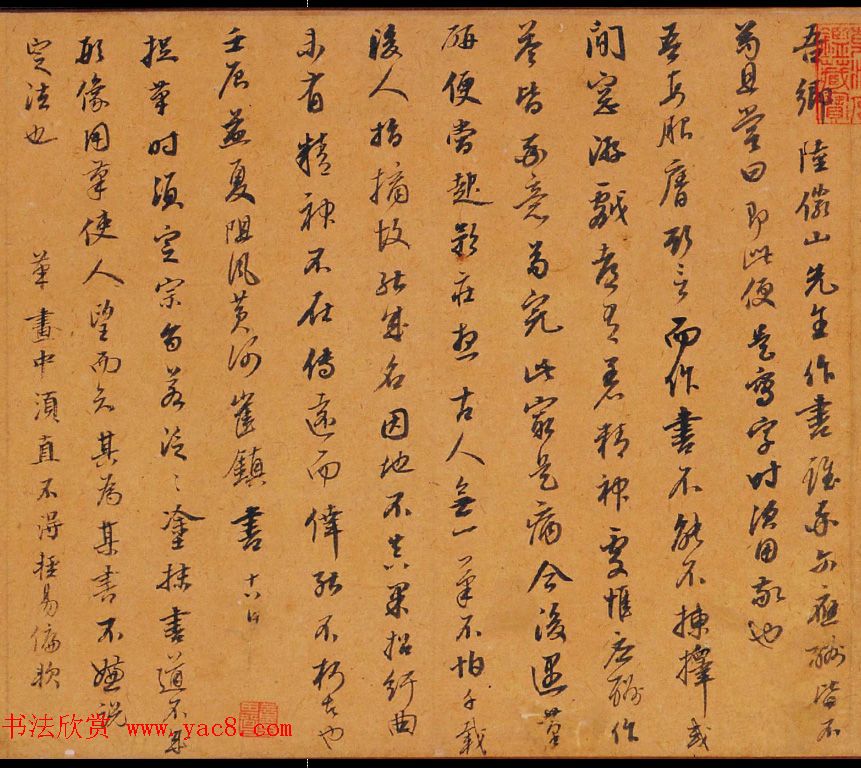 吾鄉陸儼山先生作書雖率爾應酬皆不
苟且嘗曰即此便是寫字時須用敬也
吾每服膺斯言而作書不能不揀擇或
閒窓游戲都有着精神處惟應酬作
答皆率意苟完此最是病今後遇筆
研便當起矜莊想古人無一筆不怕千載
後人指摘故能成名因地不真果招紆曲
未有精神不在傳遠而倖能不朽者也
壬辰孟夏阻風黃河崔鎮書 十六日
捉筆時須定宗旨若泛泛塗抹書道不成
形像用筆使人望而知其為某書不嫌說
定法也 筆畫中須直不得輕易偏軟
书法欣赏 www.yac8.com